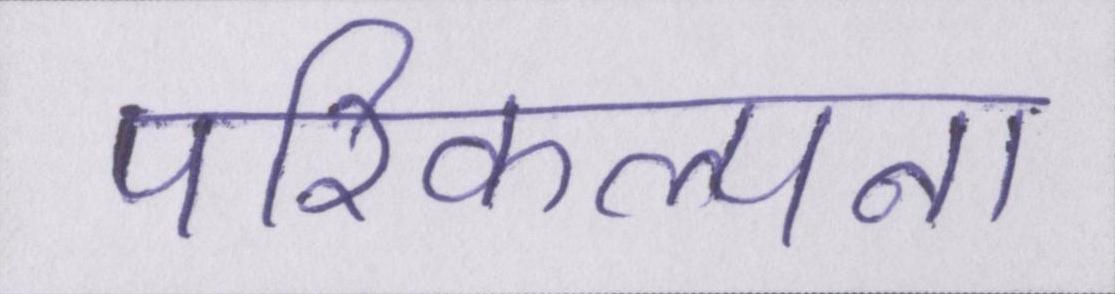 परिकल्पना